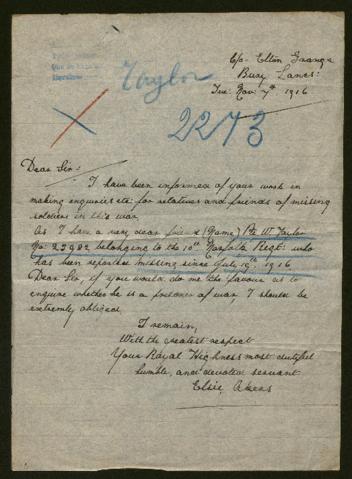 Taylor
2273
C/o Elton Grange
Bury Lancs:
Tue. Nov. 7th 1916
Dear Sir:-
I have been informed of your work in
making enquiries etc. for relatives and friends of missing
soldiers in this war.
As I have a very dear friend (Name) Pte W. Taylor
No: 22982 belonging to the 10th Norfolk Regt: who
has been reported missing since July 19th 1916
Dear Sir, if you would do me the favour as to
enquire whether he is a prisoner of war I should be
extremely obliged,
I remain,
With the greatest respect
Your Royal Highness most dutiful
humble, and devoted servant
Elsie Akers